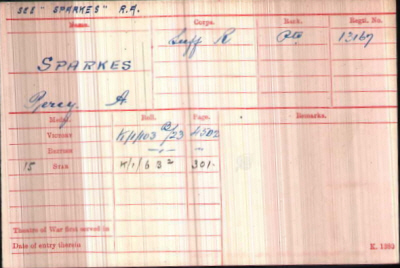 SEE "SPARKES" R.A.
Name. Corps. Rank. Regtl. No.
Suff R Pte 13167
SPARKES
Percy A.
Medal. Roll. Page. Remarks.
VICTORY K/1/103 4502
BRITISH -"- "
15 STAR K/1/6 3² 301.
Theatre of War first served in
Date of entry therein K. 1380